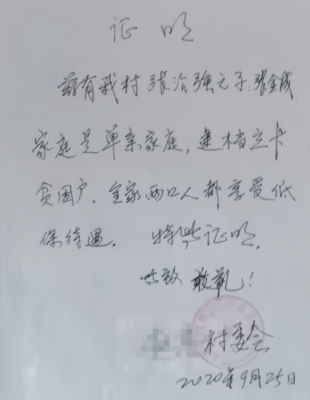 证明
兹有我村张治强之子张金成
家庭是单亲家庭，建档立卡
贫困户，全家两口人都享受低
保待遇。特此证明。
此致 敬礼！
村委会
2020年9月25日